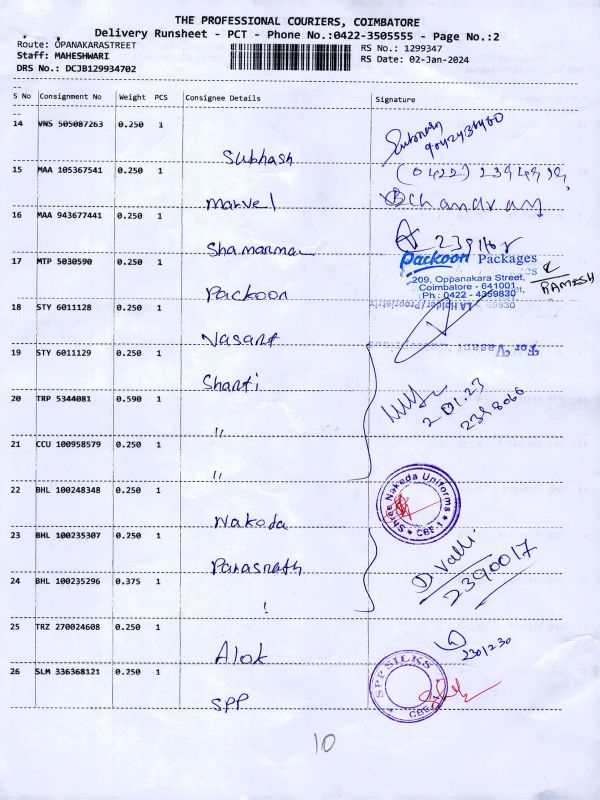 THE PROFESSIONAL COURIERS, COIMBATORE
Delivery Runsheet - PCT - Phone No.:0422-3505555 - Page No.:2
Route: OPANAKARASTREET
RS No.: 1299347
Staff: MAHESHWARI
RS Date: 02-Jan-2024
DRS No.: DCJB129934702
S No Consignment No Weight PCS Consignee Details Signature
14 VNS 505087263 0.250 1
Subhash
15 MAA 105367541 0.250 1
(0422)
Marvel
chandran
16 MAA 943677441 0.250 1
17 MTP 5030590 0.250 1
Packoon Packages
209, Oppanakara Street,
Coimbatore - 641001
Ph : 0422 - 4359830
RAMESH
Packoon
18 STY 6011128 0.250 1
Vasant
For Vasant
19 STY 6011129 0.250 1
Shanti
20 TRP 5344081 0.590 1
2.01.23
"
21 CCU 100958579 0.250 1
"
22 BHL 100248348 0.250 1
Shree Nakoda Uniforms
CBE-1
Nakoda
23 BHL 100235307 0.250 1
Parasnath
D. Valli
2390017
24 BHL 100235296 0.375 1
25 TRZ 270024608 0.250 1
2301230
Alok
26 SLM 336368121 0.250 1
SPP SILKS
CBE-1
SPP
10